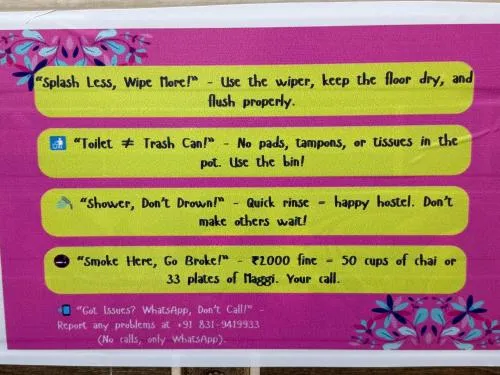 “Splash Less, Wipe More!” - Use the wiper, keep the floor dry, and
flush properly.
“Toilet ≠ Trash Can!” - No pads, tampons, or tissues in the
pot. Use the bin!
“Shower, Don't Drown!” - Quick rinse = happy hostel. Don't
make others wait!
“Smoke Here, Go Broke!” - ₹2000 fine = 50 cups of chai or
33 plates of Maggi. Your call.
“Got Issues? WhatsApp, Don't Call!” -
Report any problems at +91 831-9419933
(No calls, only WhatsApp).